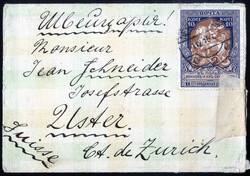 Швейцарія!
Monsieur
Jean Schneider
Josefstrasse
Uster
Suisse
Ct. de Zurich.
ПОЧТА
10 КОП 10 КОП